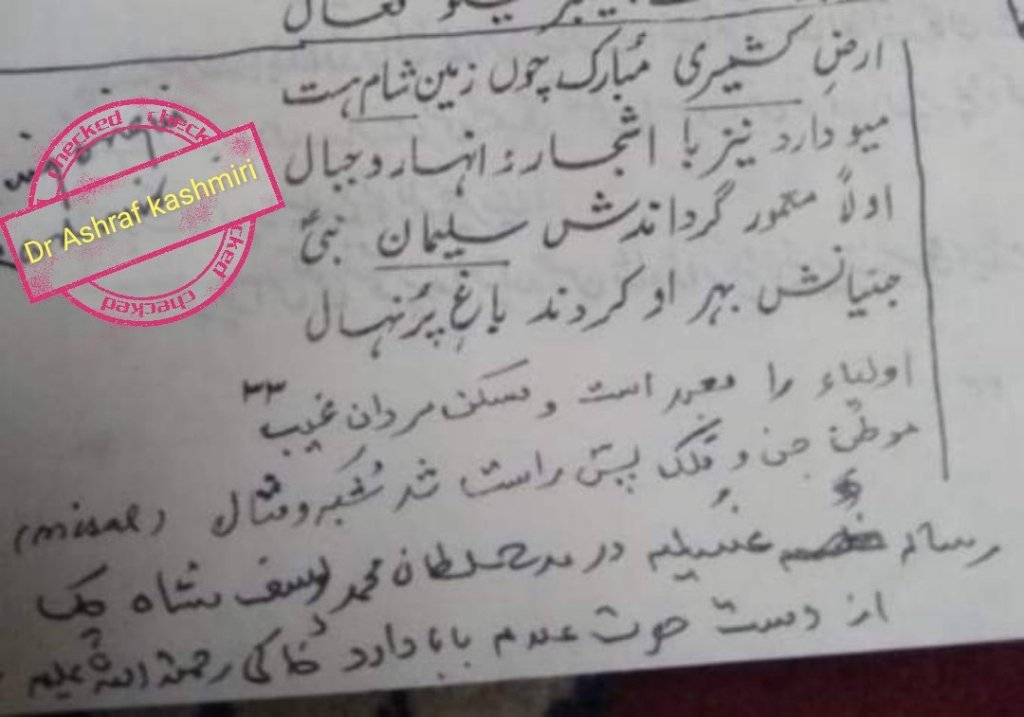 فعال
ارضِ کشمیری مُبارک چوں زمین شام ہست
میو دارد نیز با اشجار و انہار و جبال
اولاً معمور گرداندش سلیمان نبیؑ
جنیانش بہر او کردند باغِ پُرنہال
اولیاء را معبد است و مسکن مردان غیب ۳۳
موطن جن و فلک پیش راست شد شبہ و مثال (misal)
رسالہ غسلیہ در مدح سلطان محمد یوسف شاہ چک
از دست حضرت علامہ بابا داود خاکی رحمۃ اللہ علیہ
checked
checked
Dr Ashraf kashmiri
checked
checked